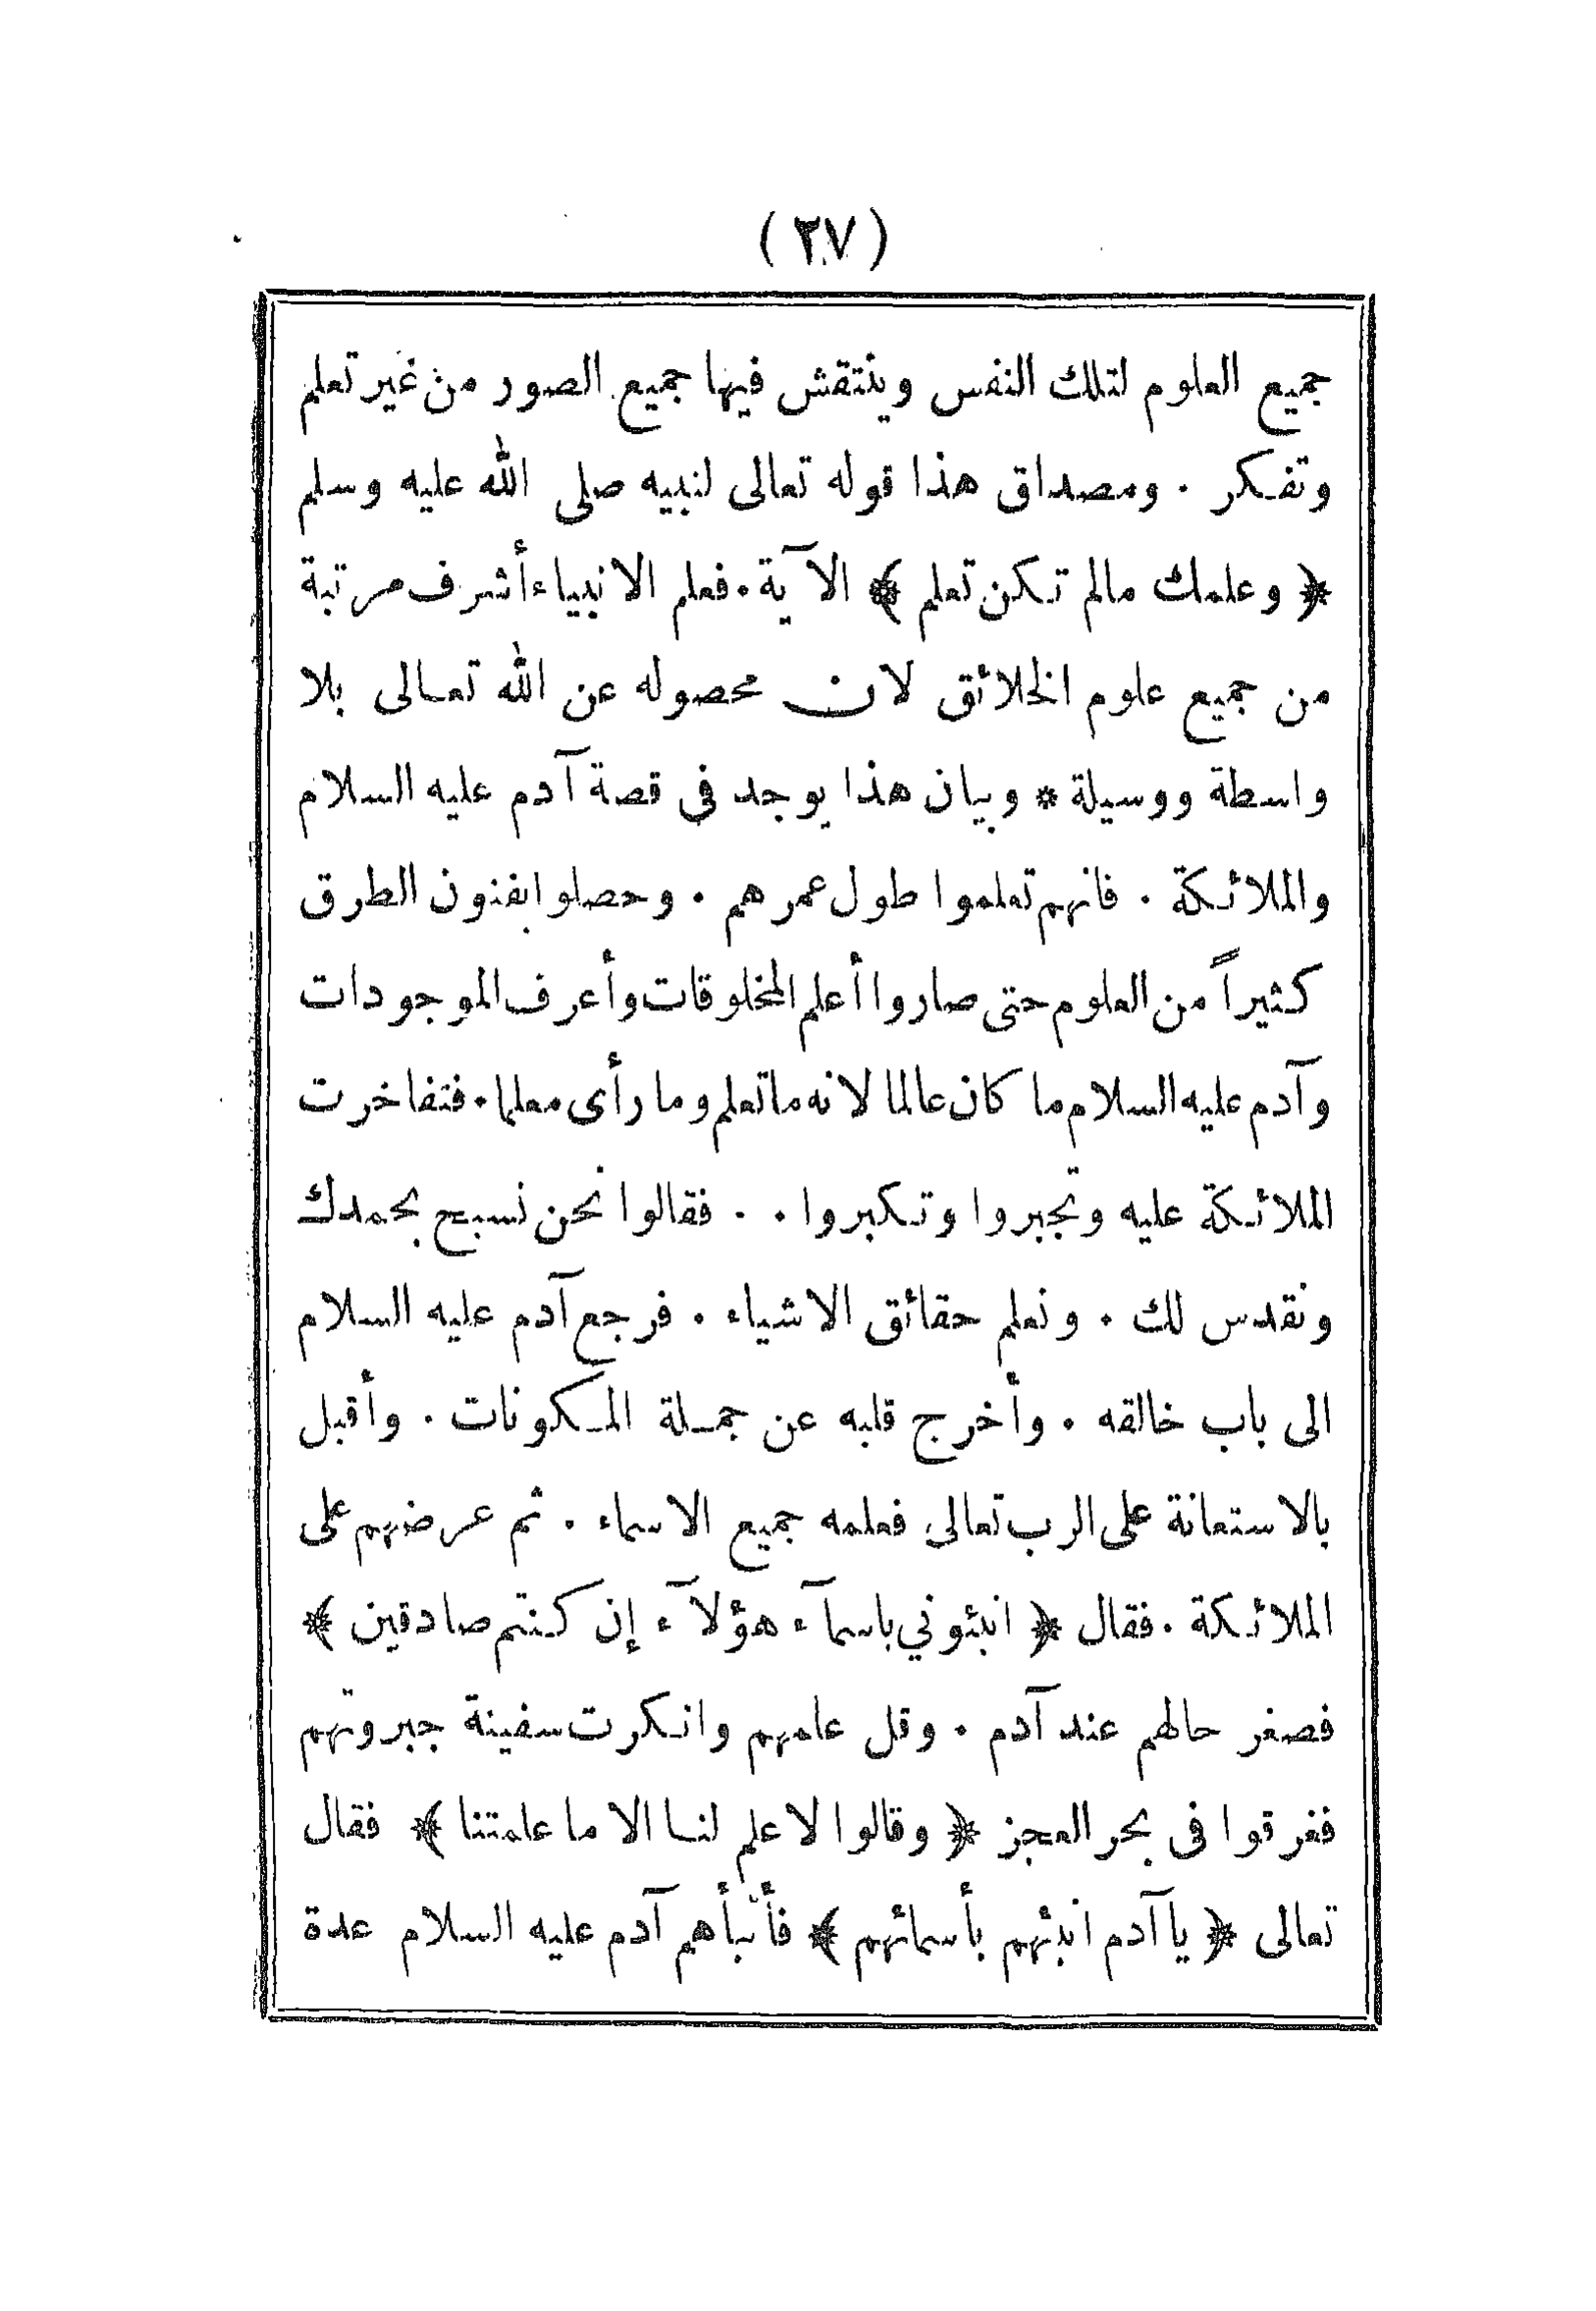 ( ٢٧ )
جميع العلوم لتلك النفس وينتقش فيها جميع الصور من غير تعلم
وتفكر . ومصداق هذا قوله تعالى لنبيه صلى الله عليه وسلم
﴿ وعلمك مالم تكن تعلم ﴾ الآية . فعلم الانبياء أشرف مرتبة
من جميع علوم الخلائق لان محصوله عن الله تعالى بلا
واسطة ووسيلة * وبيان هذا يوجد فى قصة آدم عليه السلام
والملائكة . فانهم تعلموا طول عمرهم . وحصلوا بفنون الطرق
كثيراً من العلوم حتى صاروا أعلم المخلوقات وأعرف الموجودات
وآدم عليه السلام ما كان عالما لانه ماتعلم وما رأى معلما . فتفاخرت
الملائكة عليه وتجبروا وتكبروا . . فقالوا نحن نسبح بحمدك
ونقدس لك . ونعلم حقائق الاشياء . فرجع آدم عليه السلام
الى باب خالقه . وأخرج قلبه عن جملة المكونات . وأقبل
بالاستعانة على الرب تعالى فعلمه جميع الاسماء . ثم عرضهم على
الملائكة . فقال ﴿ انبئوني باسمآء هؤلآء إن كنتم صادقين ﴾
فصغر حالهم عند آدم . وقل علمهم وانكرت سفينة جبروتهم
فغرقوا فى بحر العجز ﴿ وقالوا لاعلم لنا الا ما علمتنا ﴾ فقال
تعالى ﴿ يا آدم انبئهم بأسمائهم ﴾ فأنبأهم آدم عليه السلام عدة